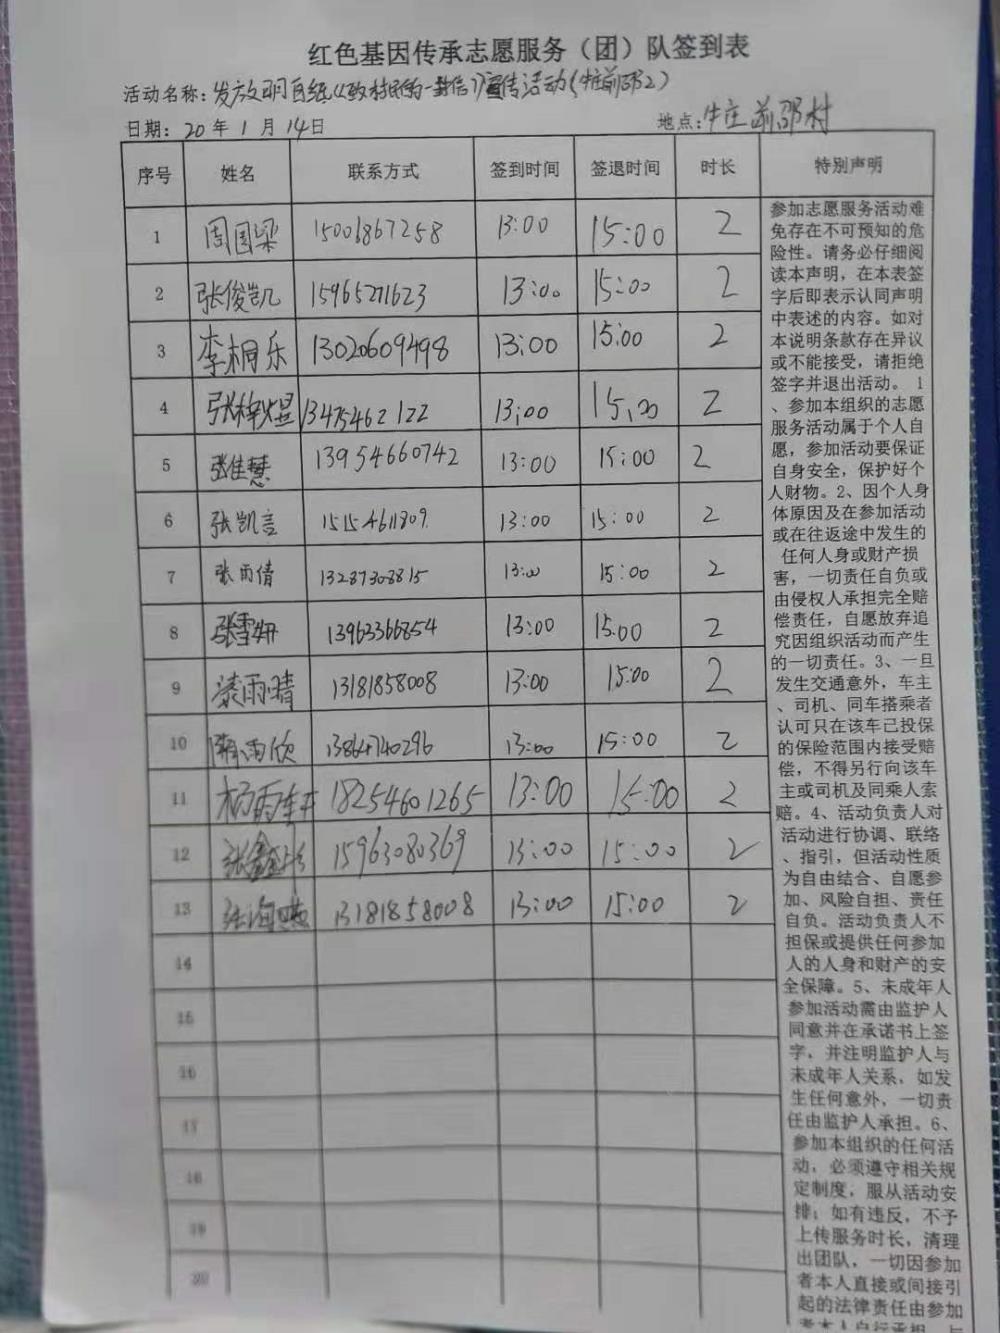 红色基因传承志愿服务（团）队签到表
活动名称：发放明白纸《致村民的一封信》宣传活动（牛庄前邵2）
日期：20 年 1 月 14日 地点：牛庄前邵村
序号 姓名 联系方式 签到时间 签退时间 时长 特别声明
1 周国梁 15001867258 13:00 15:00 2
2 张俊凯 15965271623 13:00 15:00 2
3 李桐乐 13020609498 13:00 15:00 2
4 张梓煜 13475462122 13:00 15:00 2
5 张佳慧 13954660742 13:00 15:00 2
6 张凯言 15154611809 13:00 15:00 2
7 张雨倩 13287308815 13:00 15:00 2
8 张雪妍 13963366854 13:00 15:00 2
9 雨晴 13181858008 13:00 15:00 2
10 雨欣 13864740296 13:00 15:00 2
11 杨雨 18254601265 13:00 15:00 2
12 张鑫 15963080369 13:00 15:00 2
13 张海燕 13181858008 13:00 15:00 2
14
15
16
17
18
19
20
参加志愿服务活动难
免存在不可预知的危
险性。请务必仔细阅
读本声明，在本表签
字后即表示认同声明
中表述的内容。如对
本说明条款存在异议
或不能接受，请拒绝
签字并退出活动。1
、参加本组织的志愿
服务活动属于个人自
愿，参加活动要保证
自身安全，保护好个
人财物。2、因个人身
体原因及在参加活动
或在往返途中发生的
任何人身或财产损
害，一切责任自负或
由侵权人承担完全赔
偿责任，自愿放弃追
究因组织活动而产生
的一切责任。3、一旦
发生交通意外，车主
、司机、同车搭乘者
认可只在该车已投保
的保险范围内接受赔
偿，不得另行向该车
主或司机及同乘人索
赔。4、活动负责人对
活动进行协调、联络
、指引，但活动性质
为自由结合、自愿参
加、风险自担、责任
自负。活动负责人不
担保或提供任何参加
人的人身和财产的安
全保障。5、未成年人
参加活动需由监护人
同意并在承诺书上签
字，并注明监护人与
未成年人关系，如发
生任何意外，一切责
任由监护人承担。6、
参加本组织的任何活
动，必须遵守相关规
定制度，服从活动安
排；如有违反，不予
上传服务时长，清理
出团队，一切因参加
者本人直接或间接引
起的法律责任由参加
者本人自行承担。与